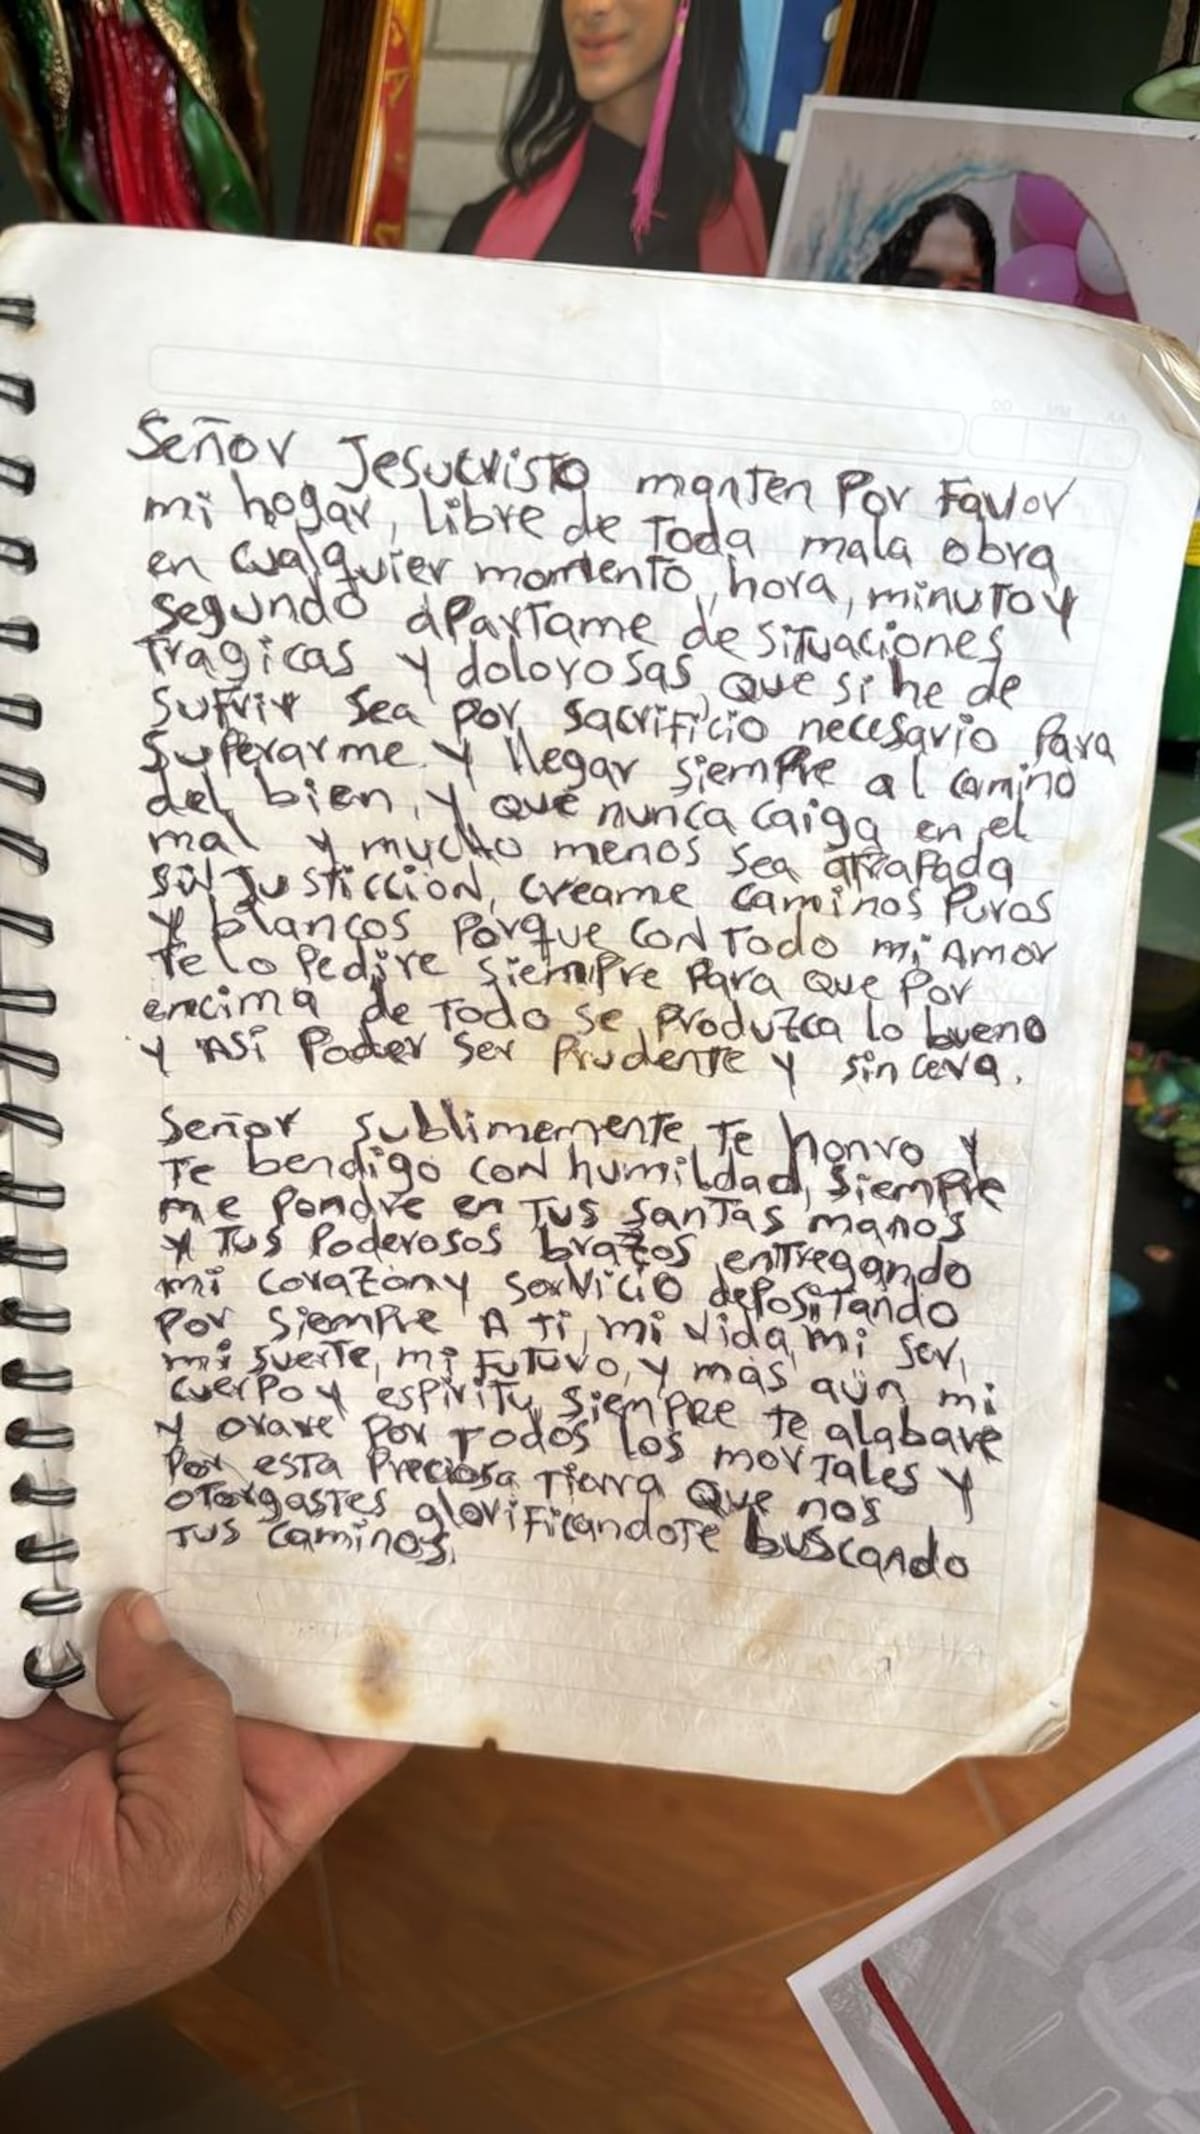 Señor Jesucristo manten Por Favor
mi hogar, libre de Toda mala obra
en cualquier momento, hora, minuto y
segundo aPartame de situaciones
tragicas y dolorosas, que si he de
sufrir sea por sacrificio necesario Para
SuPerarme y llegar siemPre al camino
del bien, y que nunca caiga en el
mal y mucho menos sea atraPada
sin Justiccion, creame caminos Puros
y blancos Porque con Todo mi Amor
Te lo Pedire siemPre Para que Por
encima de Todo se Produzca lo bueno
y Asi Poder ser Prudente y sincera.
Señor sublimemente Te honro y
Te bendigo con humildad, siemPre
me Pondre en Tus santas manos
y Tus Poderosos brazos entregando
mi corazon y servicio dePositando
Por siemPre A ti, mi vida, mi ser,
mi suerte, mi Futuro, y mas aún mi
cuerpo y espiritu, siemPre te alabare
y orare Por Todos los mortales y
Por esta Preciosa Tierra Que nos
otorgastes glorificandote buscando
Tus caminos.